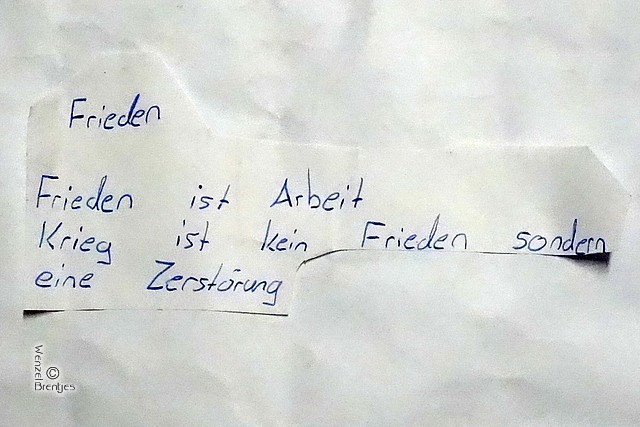 Frieden
Frieden ist Arbeit
Krieg ist kein Frieden sondern
eine Zerstörung
Wenzel
©
Brentjes